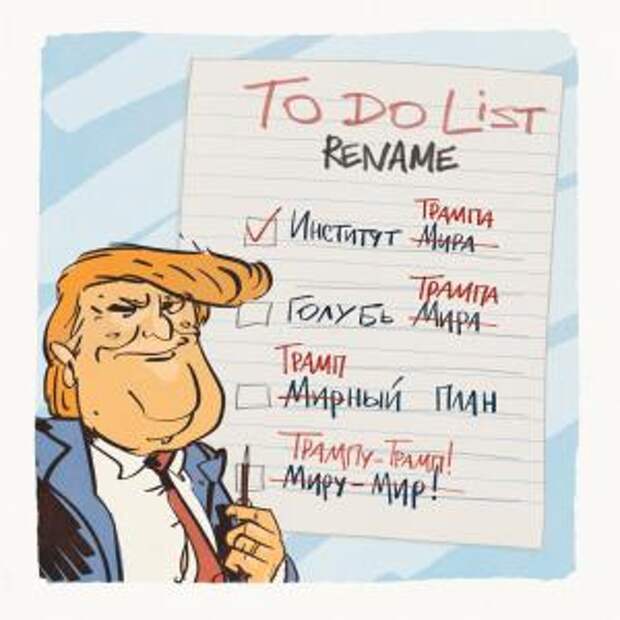 TO DO LIST
RENAME
ТРАМПА
ИНСТИТУТ МИРА
ТРАМПА
ГОЛУБЬ МИРА
ТРАМП
МИРНЫЙ ПЛАН
ТРАМПУ-ТРАМП!
МИРУ-МИР!